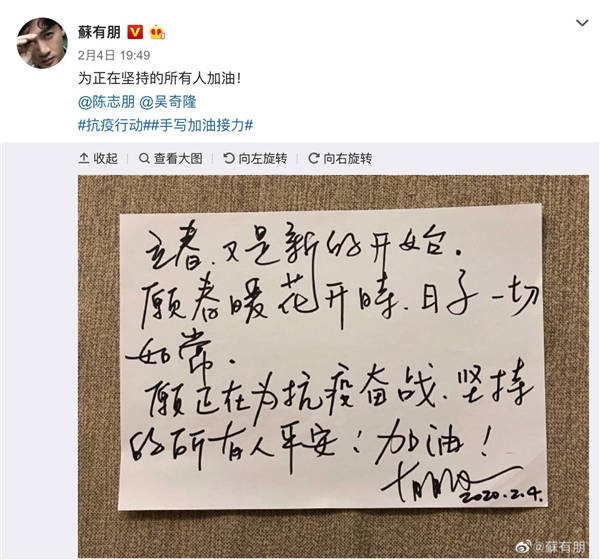 蘇有朋
2月4日 19:49
为正在坚持的所有人加油！
@陈志朋 @吴奇隆
#抗疫行动##手写加油接力#
收起 查看大图 向左旋转 向右旋转
立春，又是新的开始。
願春暖花开時、日子一切
如常。
願正在为抗疫奋战、坚持
的所有人平安！加油！
2020.2.4.
@蘇有朋